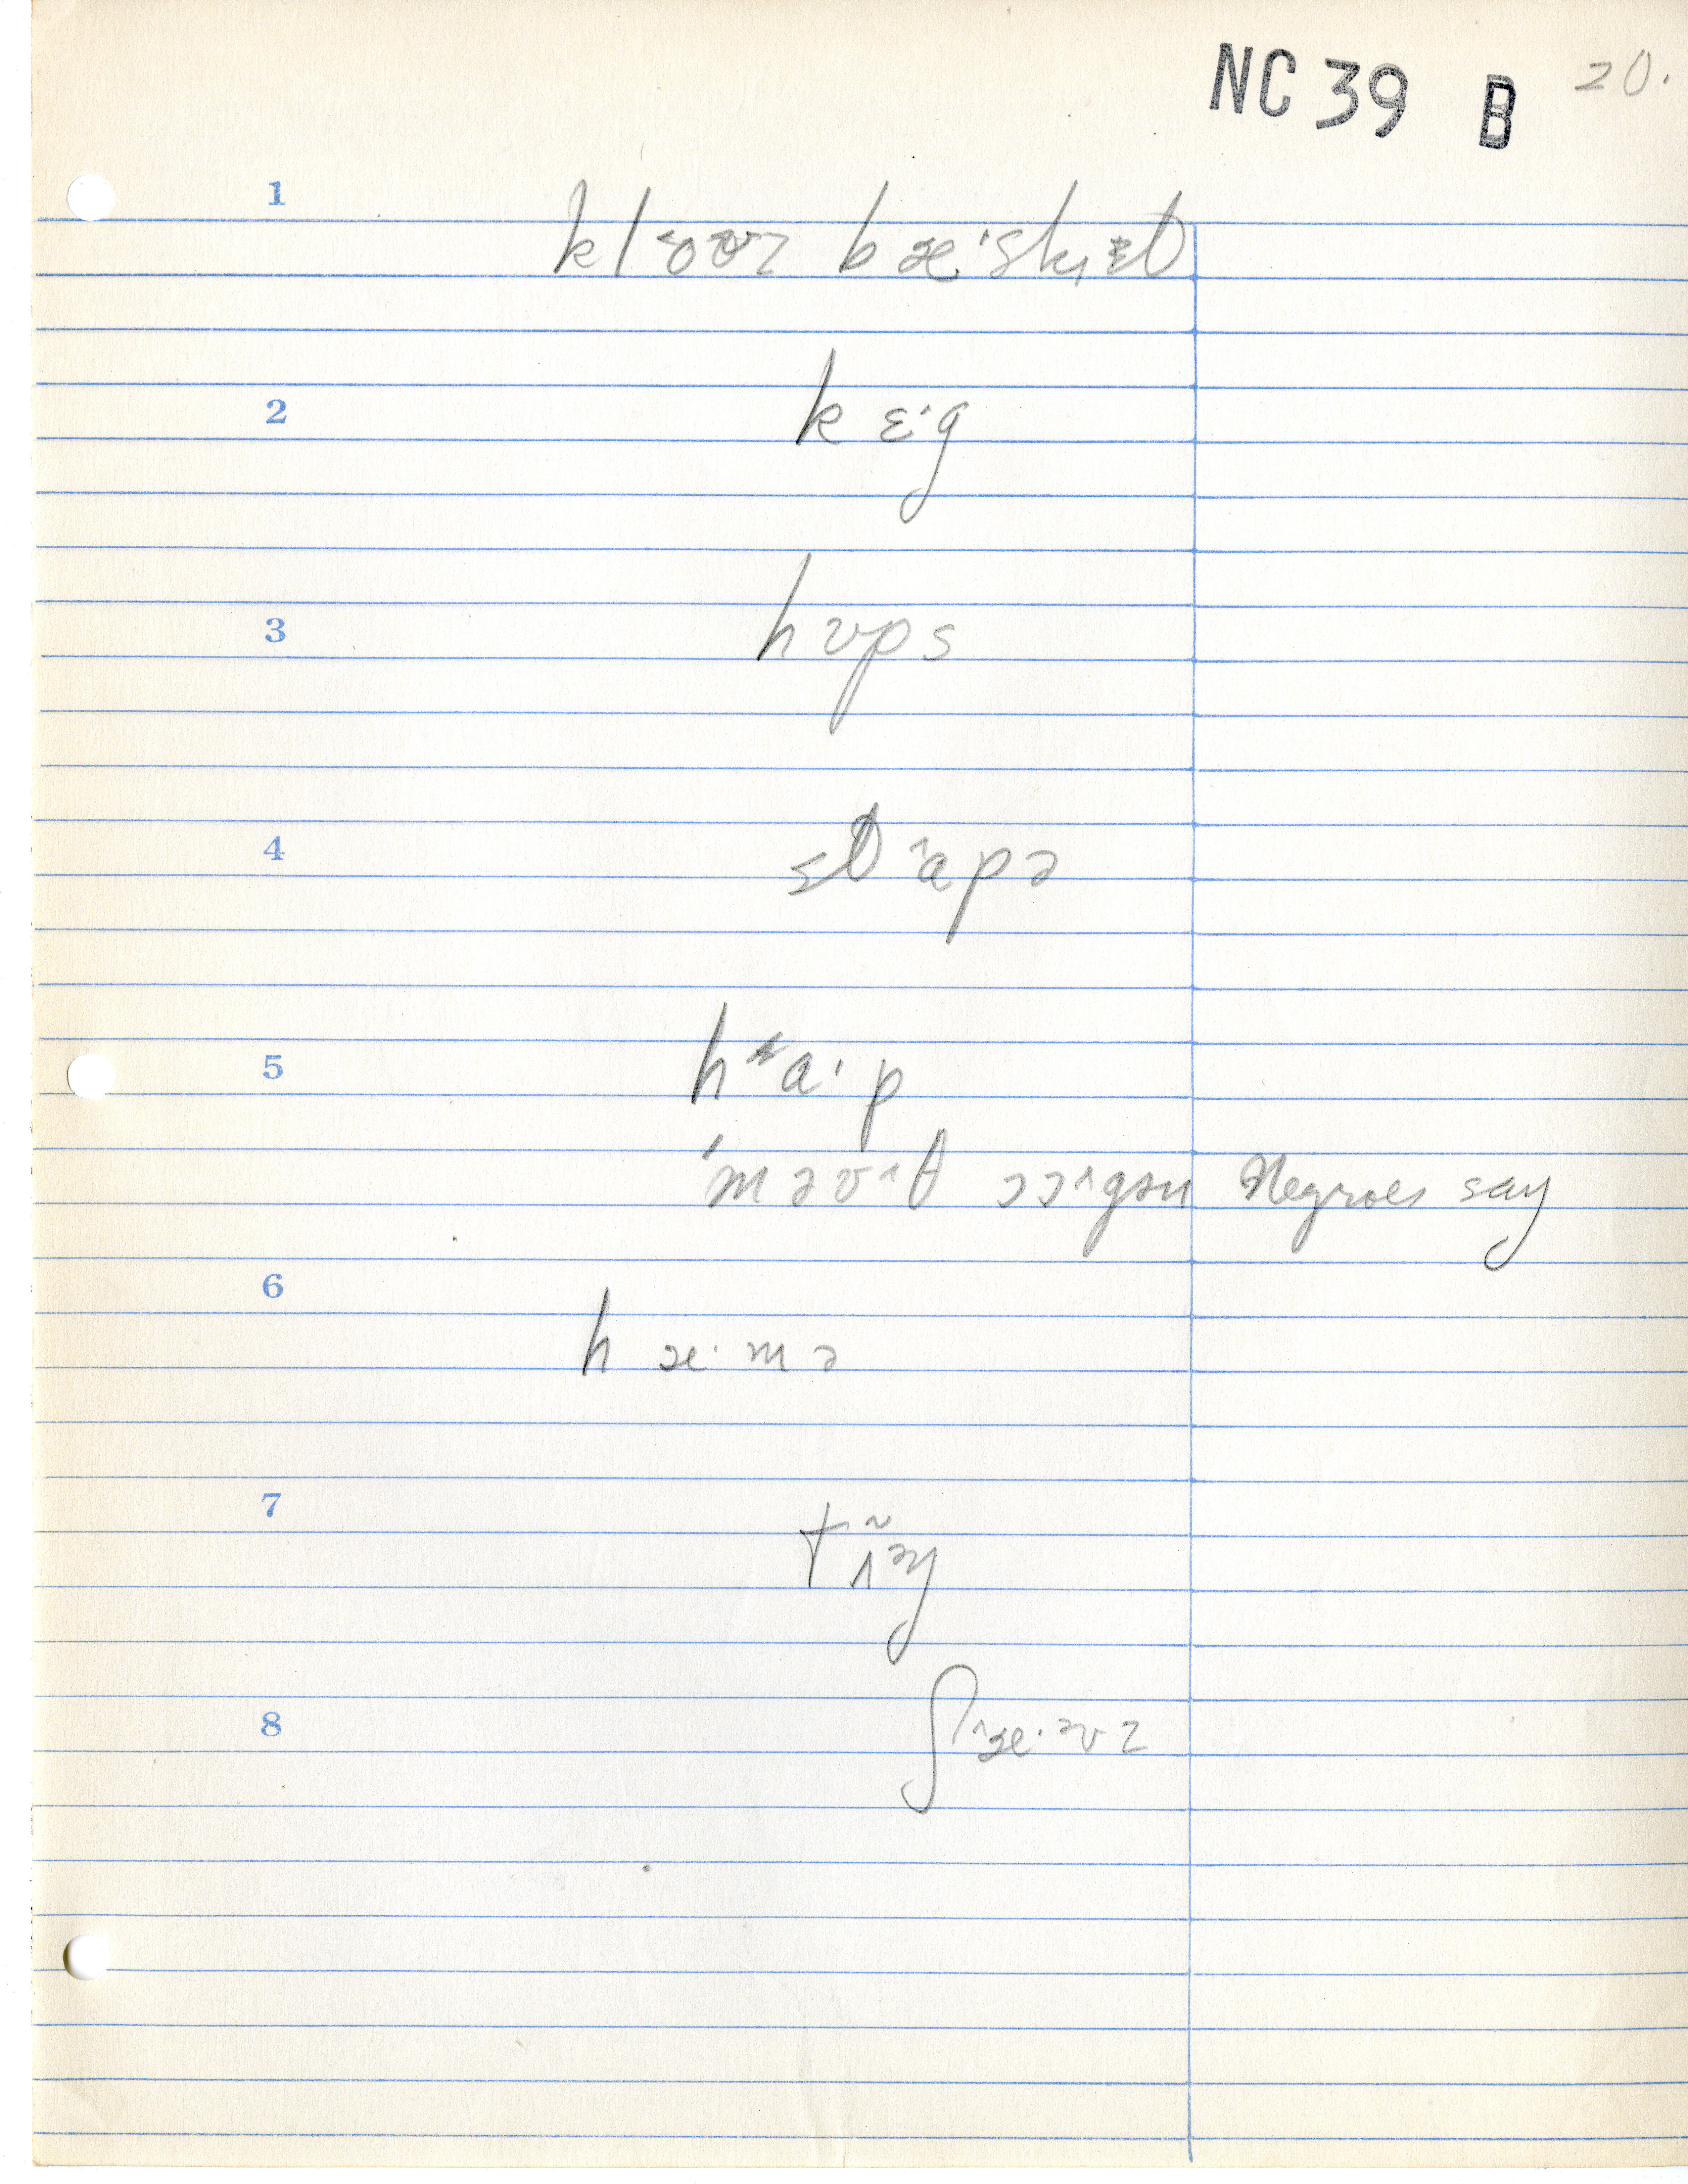 NC 39 B 20.
1
kl˂oʊz bæ·skᵻt
2
k ɛ·g
3
hʊps
4
st˄ɑpə
5
hɑ·p
maʊ˄θ ɔɔ˄gən Negroes say
6
h æ·mə
7
tʌ̃ŋ
8
ʃ˄æ·ʊz